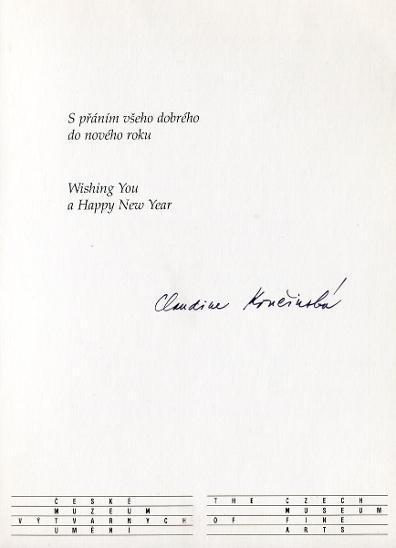 S přáním všeho dobrého
do nového roku
Wishing You
a Happy New Year
Claudine Končinská
ČESKÉ
MUZEUM
VÝTVARNÝCH
UMĚNÍ
THE CZECH
MUSEUM
OF FINE
ARTS